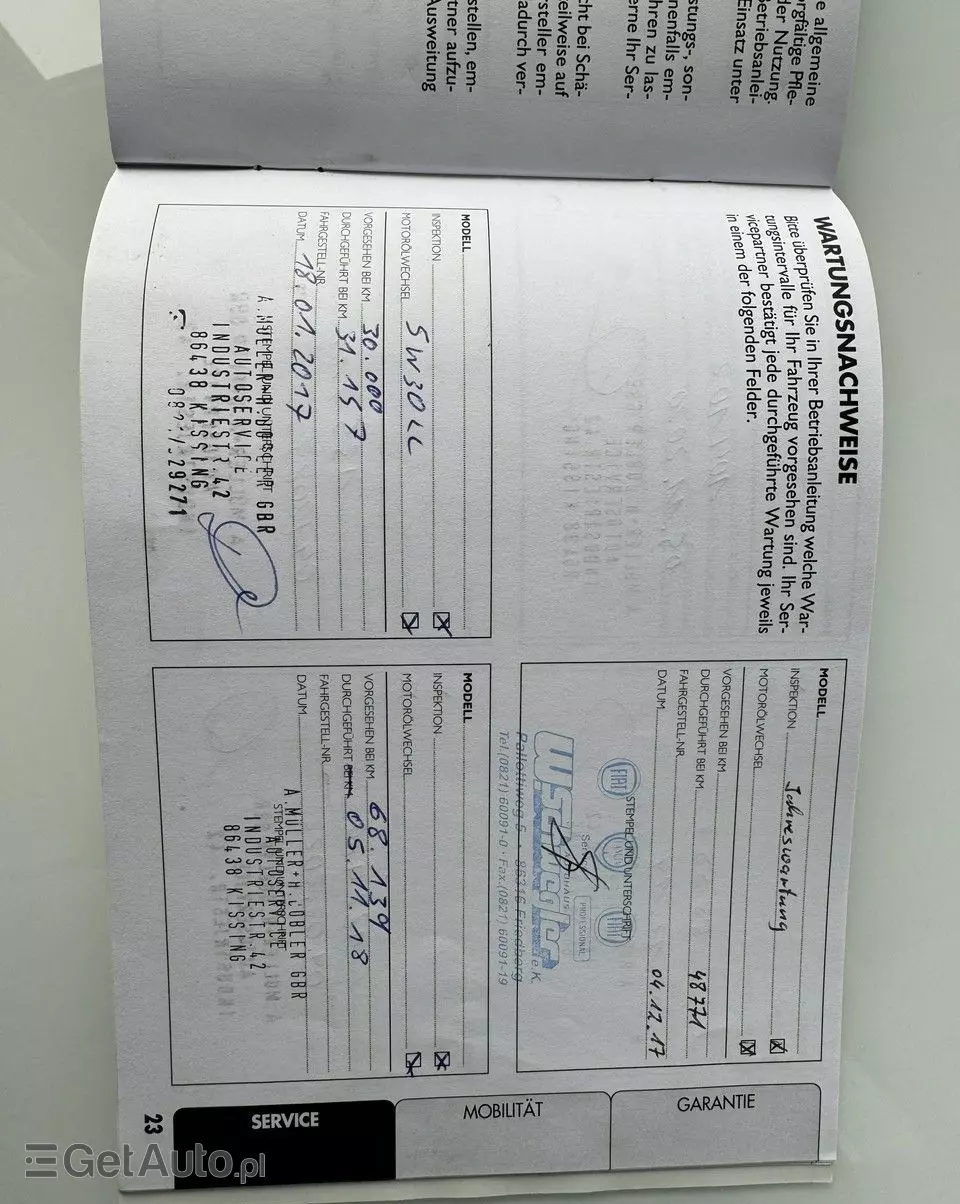 e allgemeine
rgfältige Pfle-
der Nutzung
Betriebsanlei-
Einsatz unter
stungs-, son-
nenfalls em-
hren zu las-
erne Ihr Ser-
cht bei Schä-
teilweise auf
rsteller em-
adurch ver-
stellen, em-
tner aufzu-
Ausweitung
WARTUNGSNACHWEISE
Bitte überprüfen Sie in Ihrer Betriebsanleitung welche War-
tungsintervalle für Ihr Fahrzeug vorgesehen sind. Ihr Ser-
vicepartner bestätigt jede durchgeführte Wartung jeweils
in einem der folgenden Felder.
MODELL
INSPEKTION Jahreswartung
MOTORÖLWECHSEL
VORGESEHEN BEI KM
DURCHGEFÜHRT BEI KM 48771
FAHRGESTELL-NR.
DATUM 04.12.17
STEMPEL UND UNTERSCHRIFT
FIAT
PROFESSIONAL
e.K.
86316 Friedberg
Tel. (0821) 60091-0 · Fax (0821) 60091-19
MODELL
INSPEKTION
MOTORÖLWECHSEL 5W30LL
VORGESEHEN BEI KM 30.000
DURCHGEFÜHRT BEI KM 31.157
FAHRGESTELL-NR.
DATUM 18.01.2017
STEMPEL UND UNTERSCHRIFT
GBR
AUTOSERVICE
INDUSTRIESTR.42
86438 KISSING
29271
MODELL
INSPEKTION
MOTORÖLWECHSEL
VORGESEHEN BEI KM 68.139
DURCHGEFÜHRT BEI KM 05.11.18
FAHRGESTELL-NR.
DATUM
A.MÜLLER+H.LOBLER GBR
AUTOSERVICE
INDUSTRIESTR.42
86438 KISSING
GARANTIE
MOBILITÄT
SERVICE
23
GetAuto.pl